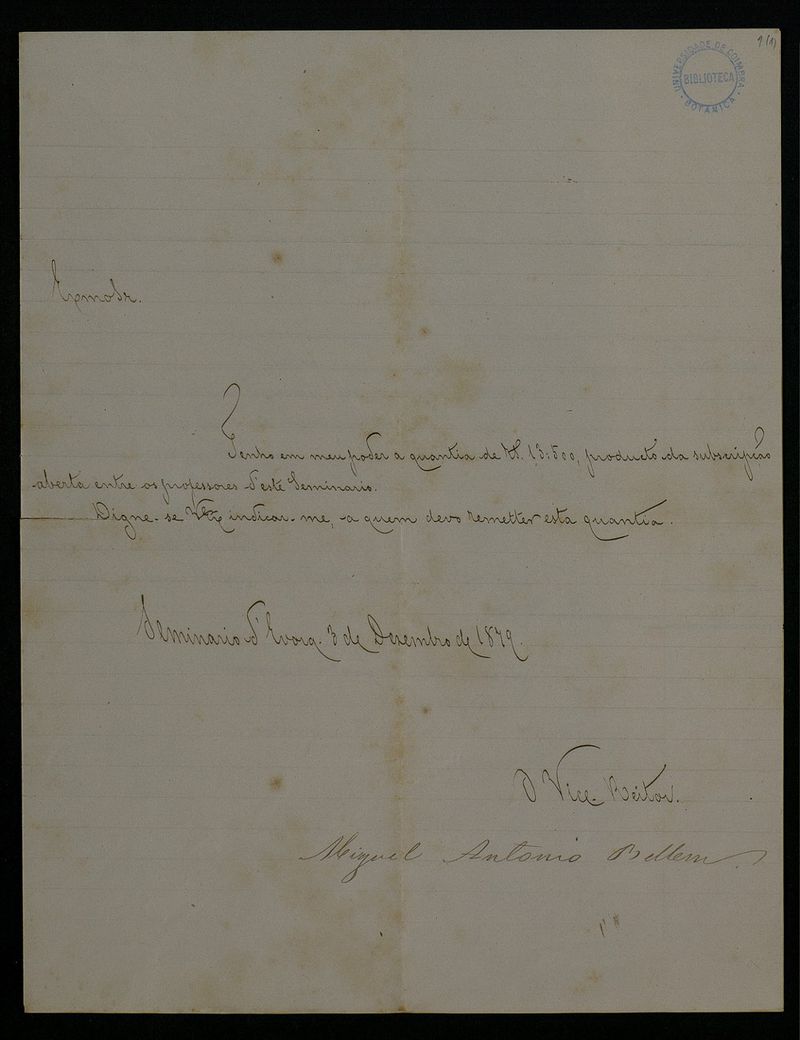 9 (1)
UNIVERSIDADE DE COIMBRA
BIBLIOTECA
BOTANICA
Exmo Sr.
Tenho em meu poder a quantia de Rs. 13:500, producto da subscripção
aberta entre os professores d'este Seminario.
Digne-se V Exa indicar-me, a quem devo remetter esta quantia.
Seminario d'Evora. 3 de Dezembro de 1879.
O Vice-Reitor.
Miguel Antonio Bellem